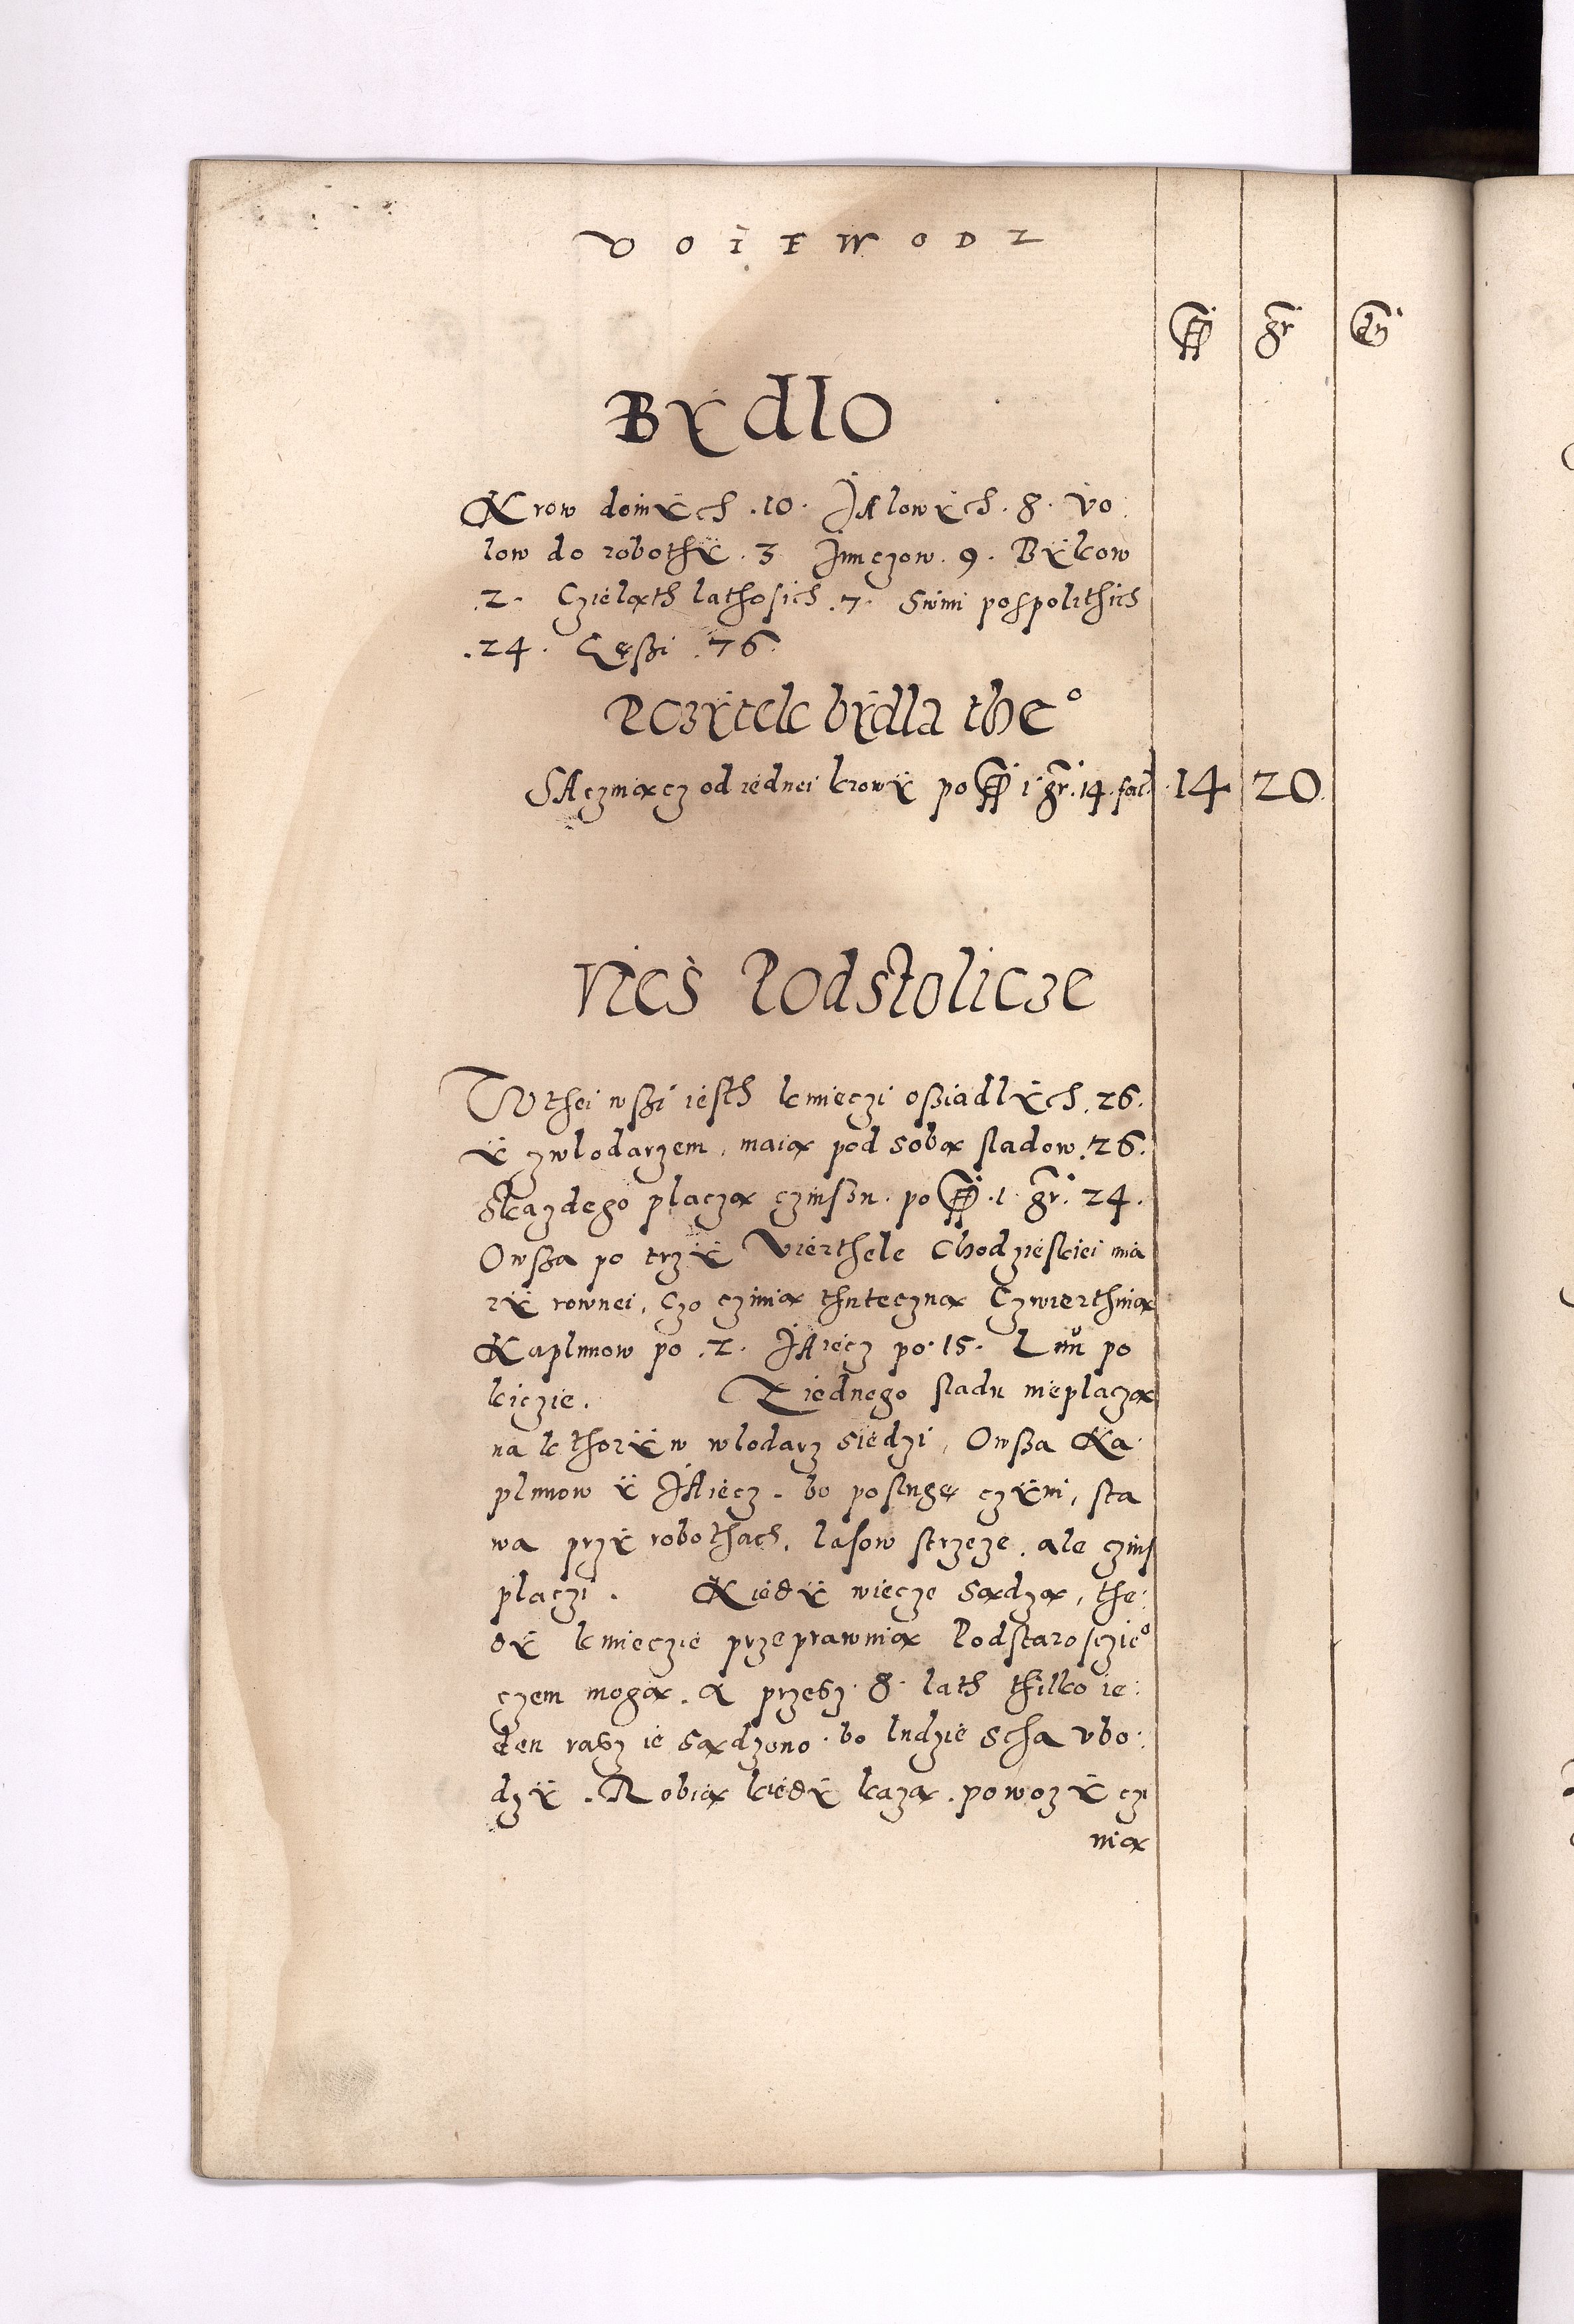 VOIEWODZ
fl gr dn
Bÿdlo
Krow doinÿch .10. Jalowÿch .8. Vo
low do robothÿ .3 Junczow .9. Bÿkow
.2. Czieląth lathosich .7. Swini pospolithich
.24. Gęßi .76.
Pozÿtek bÿdla the°
Sacznącz od iednei krowÿ po fl 1 gr. 14. fac. 14 20.
Vies Podstolicze
W thei wßi iesth kmieczi oßiadlÿch .26.
ÿ zwlodarzem, maią pod sobą sladow .26.
Skazdego placzą czinszu. po fl .1. gr. 24.
Owßa po trzÿ Vierthele Chodzieskiei mia
rÿ rownei, czo czinią thuteczną Czwierthnią
Kaplunow po .2. Jaiecz po .15. Lnu po
kiczie. Z iednego sladu nieplaczą
na kthorÿm wlodarz siedzi, Owßa Ka
plunow ÿ Jaiecz. bo poslugę czÿni, sta
wa przÿ robothach, lasow strzeze. ale czins
placzi. Kiedÿ wiecze sądzą, the:
dÿ kmieczie przeprawuią Podstarosczie°
czem mogą. A przesz .8. lath thilko ie:
den rasz ie sądzono. bo ludzie scha vbo:
dzÿ. Robią kiedÿ kazą. powozÿ czi
nią